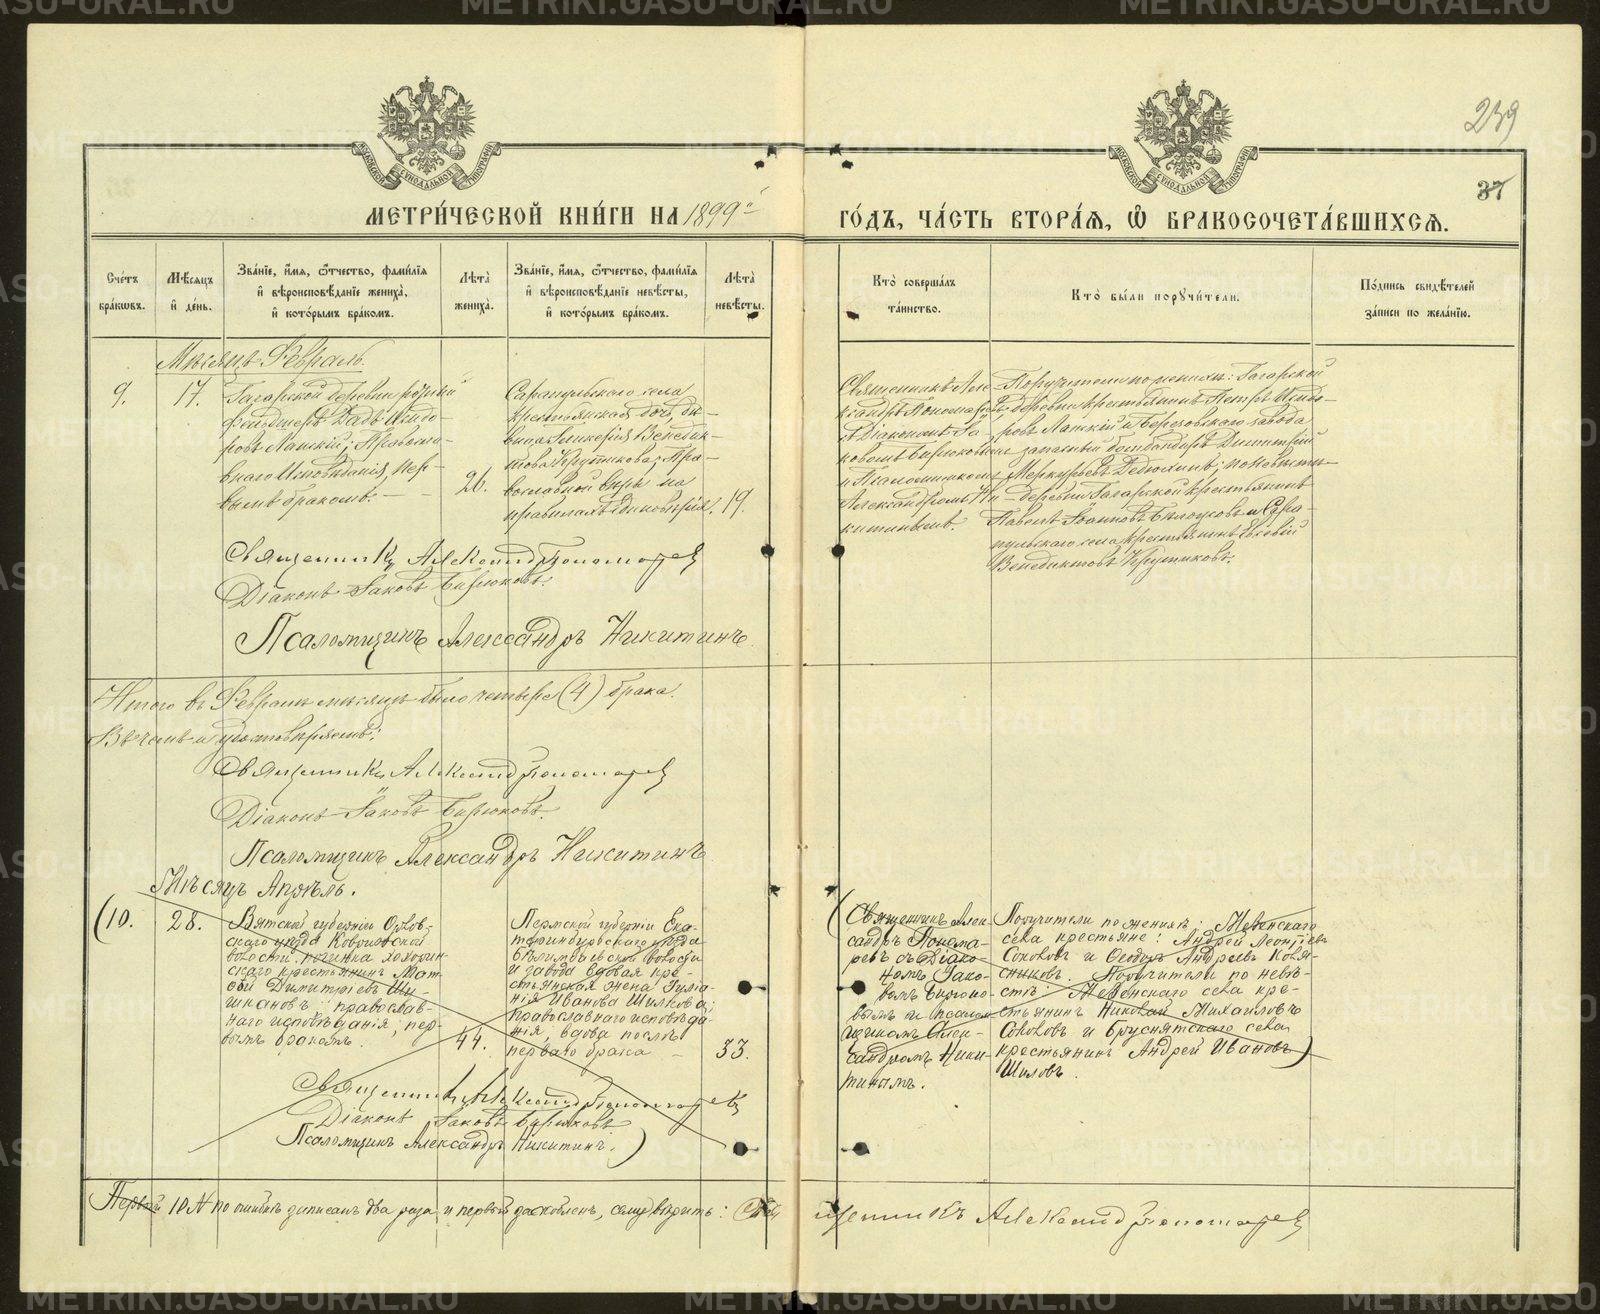 239
37
МЕТРИ́ЧЕСКОЙ КНИ́ГИ НА 1899й
ГО́ДЪ, ЧА́СТЬ ВТОРА́Я, Ѿ БРАКОСОЧЕТА́ВШИХСЯ.
Сче́тъ бра́кωвъ.
Мѣ́сяцъ и҆ де́нь.
Зва́нїе, и҆́мя, ѻ҆́тчество, фами́лїя
и҆ вѣроисповѣ́данїе жениха̀,
и҆ кото́рымъ бра́комъ.
Лѣта̀ жениха̀.
Зва́нїе, и҆́мя, ѻ҆́тчество, фами́лїя
и҆ вѣроисповѣ́данїе невѣ́сты,
и҆ кото́рымъ бра́комъ.
Лѣта̀ невѣ́сты.
Кто̀ соверша́лъ та́инство.
Кто̀ бы́ли пор҄учи́тели.
По́дпись свидѣ́телей
за́писи по жела́нїю.
Мѣсяцъ Февраль.
9.
17.
Гагарской деревни
Православнаго Исповѣданія, пер-
вымъ бракомъ.
26.
Сарапульскаго села
крестьянская дочь, дѣ-
вица Гликерія Венедик-
това Крутикова, Пра-
вославной вѣры на
правилахъ единовѣрія.
19.
Священникъ Алек-
сандръ Пономаревъ,
съ Діакономъ Іа-
ковомъ Бирюковымъ
и Псаломщикомъ
Александромъ Ни-
китинымъ.
Поручители по женихѣ: Гагарской
деревни крестьянинъ Петръ Исидо-
ровъ и Березовскаго завода
запасный бомбардиръ Димитрій
Меркурьевъ; по невѣстѣ
деревни Гагарской крестьянинъ
Павелъ Іоанновъ Бѣлоусовъ и Сара-
пульскаго села крестьянинъ
Венедиктовъ Крутиковъ.
Священникъ Александръ Пономаревъ
Діаконъ Іаковъ Бирюковъ.
Псаломщикъ Александръ Никитинъ.
Итого въ Февралѣ мѣсяцѣ было четыре (4) брака.
В чемъ и удостовѣряемъ:
Священникъ Александръ Пономаревъ
Діаконъ Іаковъ Бирюковъ.
Псаломщикъ Александръ Никитинъ.
Мѣсяцъ Апрѣль.
(10.
28.
Вятской губерніи Орлов-
скаго уѣзда
волости, починка
скаго крестьянинъ Мат-
ѳій Димитріевъ
православ-
наго исповѣданія, пер-
вымъ бракомъ.
44.
Пермской губерніи Ека-
теринбургскаго уѣзда
Билимбаевской волости
и завода вдовая кре-
стьянская жена Іуліа-
нія Иванова Шилкова;
православнаго исповѣда-
нія, вдова послѣ
перваго брака
33.
(Священникъ Алек-
сандръ Понома-
ревъ съ Діако-
номъ Іако-
вомъ Бирюко-
вымъ и псалом-
щикомъ Алек-
сандромъ Ники-
тинымъ.
Поручители по женихѣ: Мезенскаго
села крестьяне: Андрей Леонтіевъ
Соколовъ и Ѳеодоръ Андреевъ Коля-
сниковъ. Поручители по невѣ-
стѣ: Мезенскаго села кре-
стьянинъ Николай Михаиловъ
Соколовъ и Бруснятскаго села
крестьянинъ Андрей Ивановъ)
Шиловъ.
Священникъ Александръ Пономаревъ
Діаконъ Іаковъ Бирюковъ.
Псаломщикъ Александръ Никитинъ.)
Первый 10 № по ошибкѣ записанъ два раза и первый, сему вѣрить: Священникъ Александръ Пономаревъ